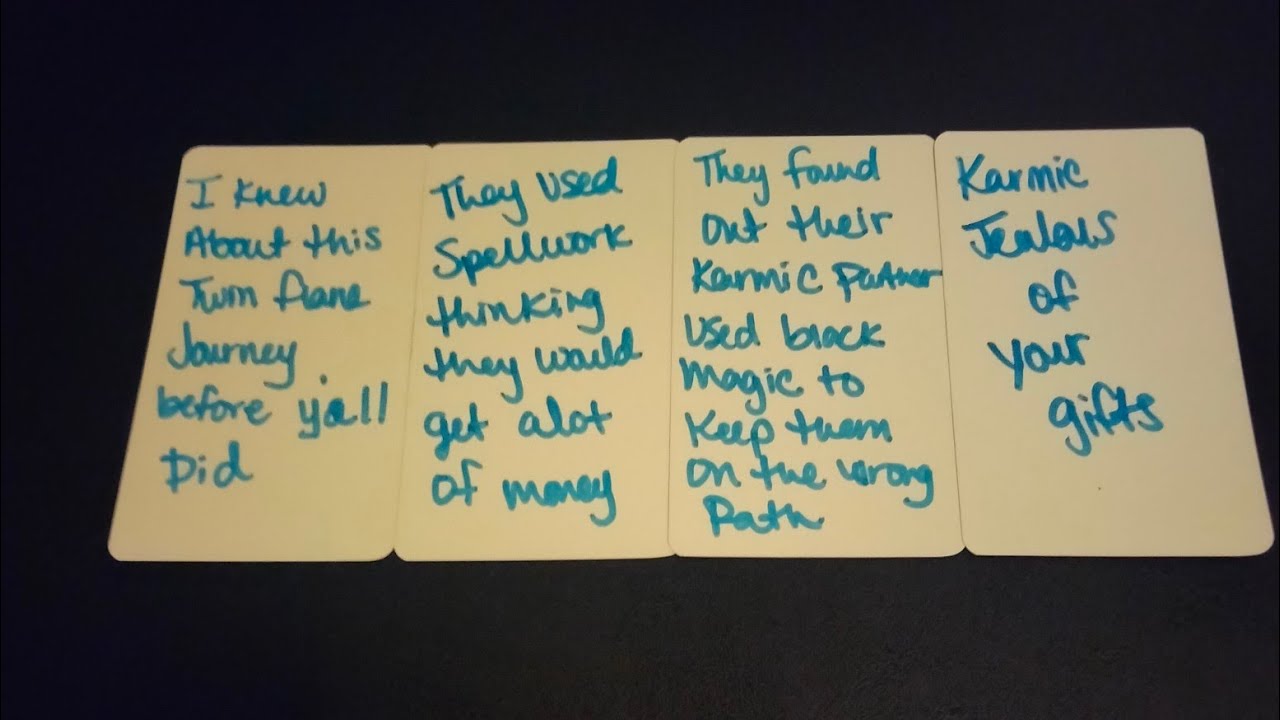 I knew
About this
Twin flame
Journey
before yall
Did
They used
Spellwork
thinking
they would
get alot
of money
They found
Out their
Karmic Partner
used black
Magic to
Keep them
On the wrong
Path
Karmic
Jealous
of
your
gifts